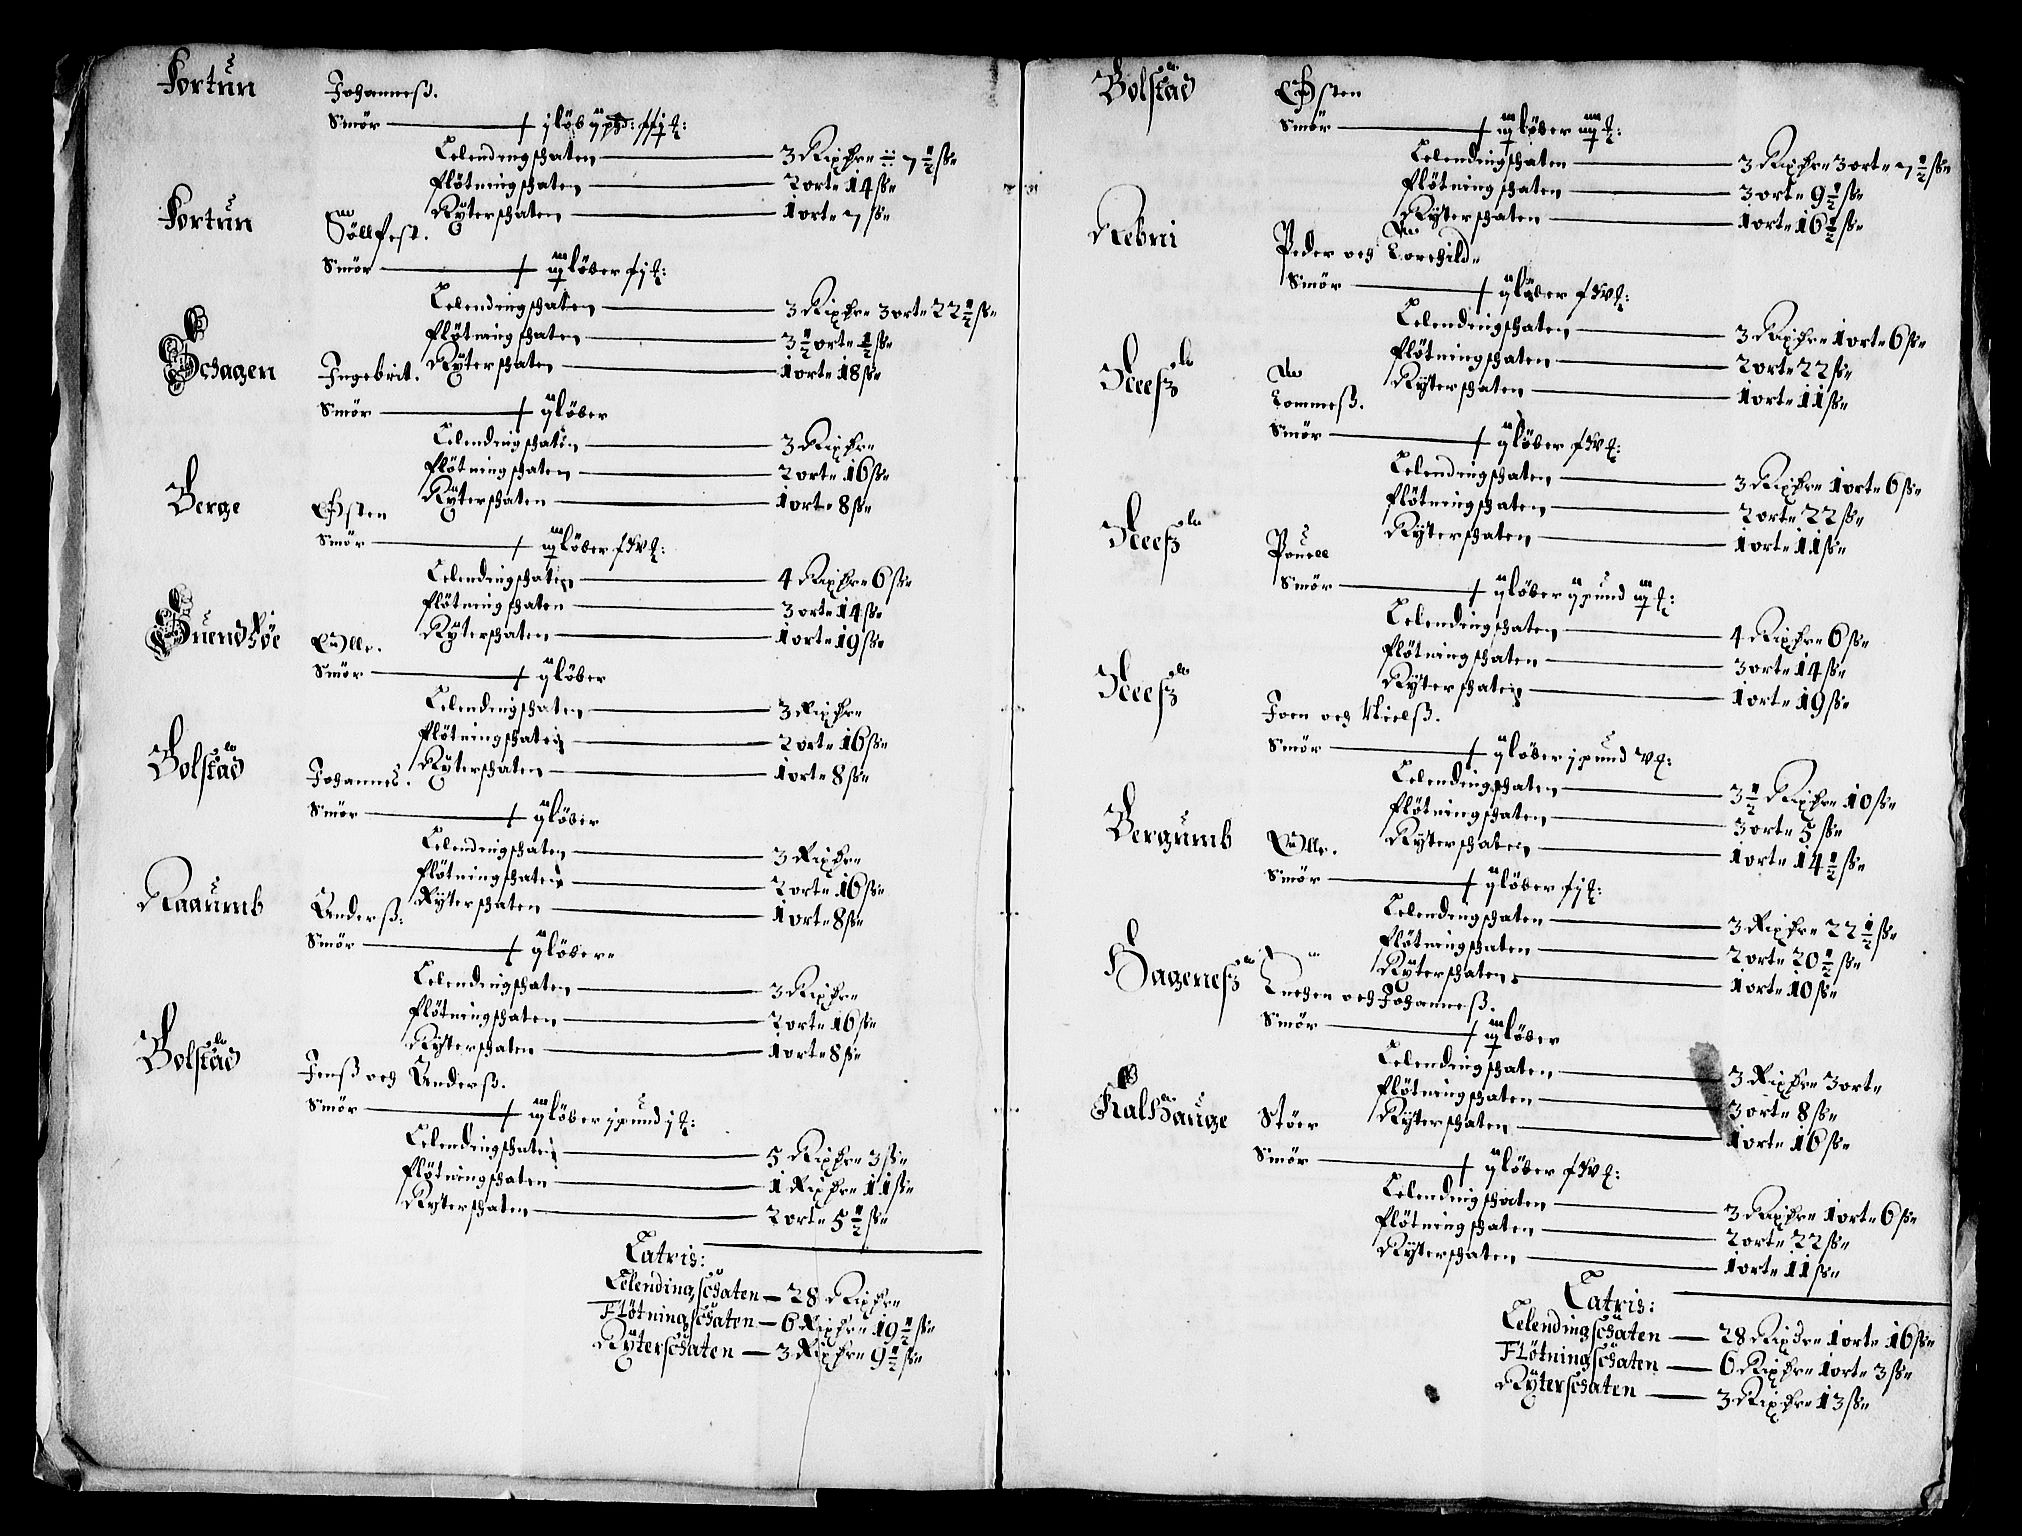 Fortun
Johanneß.
Smör — j löb ij pd: 
Lelendingschaten — 3 Rixdr 7½ ß
Flötningschaten — 2 ort 14 ß
Rÿterschaten — 1 ort 7 ß
Fortun
Söllfest.
Smör — iij löber
Lelendingschaten — 3 Rixdr 3 ort 22½ ß
Flötningschaten — 3½ ort ½ ß
Rÿterschaten — 1 ort 18 ß
Schagen
Ingebrit.
Smör — ij löber
Lelendingschaten — 3 Rixdr
Flötningschaten — 2 ort 16 ß
Rÿterschaten — 1 ort 8 ß
Berge
Østen
Smör — iij löber
Lelendingschaten — 4 Rixdr 6 ß
Flötningschaten — 3 ort 14 ß
Rÿterschaten — 1 ort 19 ß
Olle.
Smör — ij löber
Lelendingschaten — 3 Rixdr
Flötningschaten — 2 ort 16 ß
Rÿterschaten — 1 ort 8 ß
Bolstad
Johannes.
Smör — ij löber
Lelendingschaten — 3 Rixdr
Flötningschaten — 2 ort 16 ß
Rÿterschaten — 1 ort 8 ß
Raaumb
Anderß:
Smör — ij löber
Lelendingschaten — 3 Rixdr
Flötningschaten — 2 ort 16 ß
Rÿterschaten — 1 ort 8 ß
Bolstad
Jenß och Anderß.
Smör — iij löber j pund j
Lelendingschaten — 5 Rixdr 3 ß
Flötningschaten — 1 Rixdr 11 ß
Rÿterschaten — 2 ort 5½ ß
Latris:
Lelendingschaten — 28 Rixdr
Flötningschaten — 6 Rixdr 19½ ß
Rÿterschaten — 3 Rixdr 9½ ß
Bolstad
Østen
Smör — iij löber iij
Lelendingschaten — 3 Rixdr 3 ort 7½ ß
Flötningschaten — 3 ort 9½ ß
Rÿterschaten — 1 ort 16½ ß
Nebni
Peder och Torchild
Smör — ij löber
Lelendingschaten — 3 Rixdr 1 ort 6 ß
Flötningschaten — 2 ort 22 ß
Rÿterschaten — 1 ort 11 ß
Tommeß.
Smör — ij löber
Lelendingschaten — 3 Rixdr 1 ort 6 ß
Flötningschaten — 2 ort 22 ß
Rÿterschaten — 1 ort 11 ß
Pouell
Smör — ij löber ij pund iij
Lelendingschaten — 4 Rixdr 6 ß
Flötningschaten — 3 ort 14 ß
Rÿterschaten — 1 ort 19 ß
Joen och Nielß.
Smör — ij löber j pund
Lelendingschaten — 3½ Rixdr 10 ß
Flötningschaten — 3 ort 5 ß
Rÿterschaten — 1 ort 14½ ß
Bergumb
Olle.
Smör — ij löber
Lelendingschaten — 3 Rixdr 22½ ß
Flötningschaten — 2 ort 20½ ß
Rÿterschaten — 1 ort 10 ß
Hageneß
och Johanneß.
Smör — iij löber
Lelendingschaten — 3 Rixdr 3 ort
Flötningschaten — 3 ort 8 ß
Rÿterschaten — 1 ort 16 ß
Kalhauge
Stöer
Smör — ij löber
Lelendingschaten — 3 Rixdr 1 ort 6 ß
Flötningschaten — 2 ort 22 ß
Rÿterschaten — 1 ort 11 ß
Latris:
Lelendingschaten — 28 Rixdr 1 ort 16 ß
Flötningschaten — 6 Rixdr 1 ort 3 ß
Rÿterschaten — 3 Rixdr 13 ß